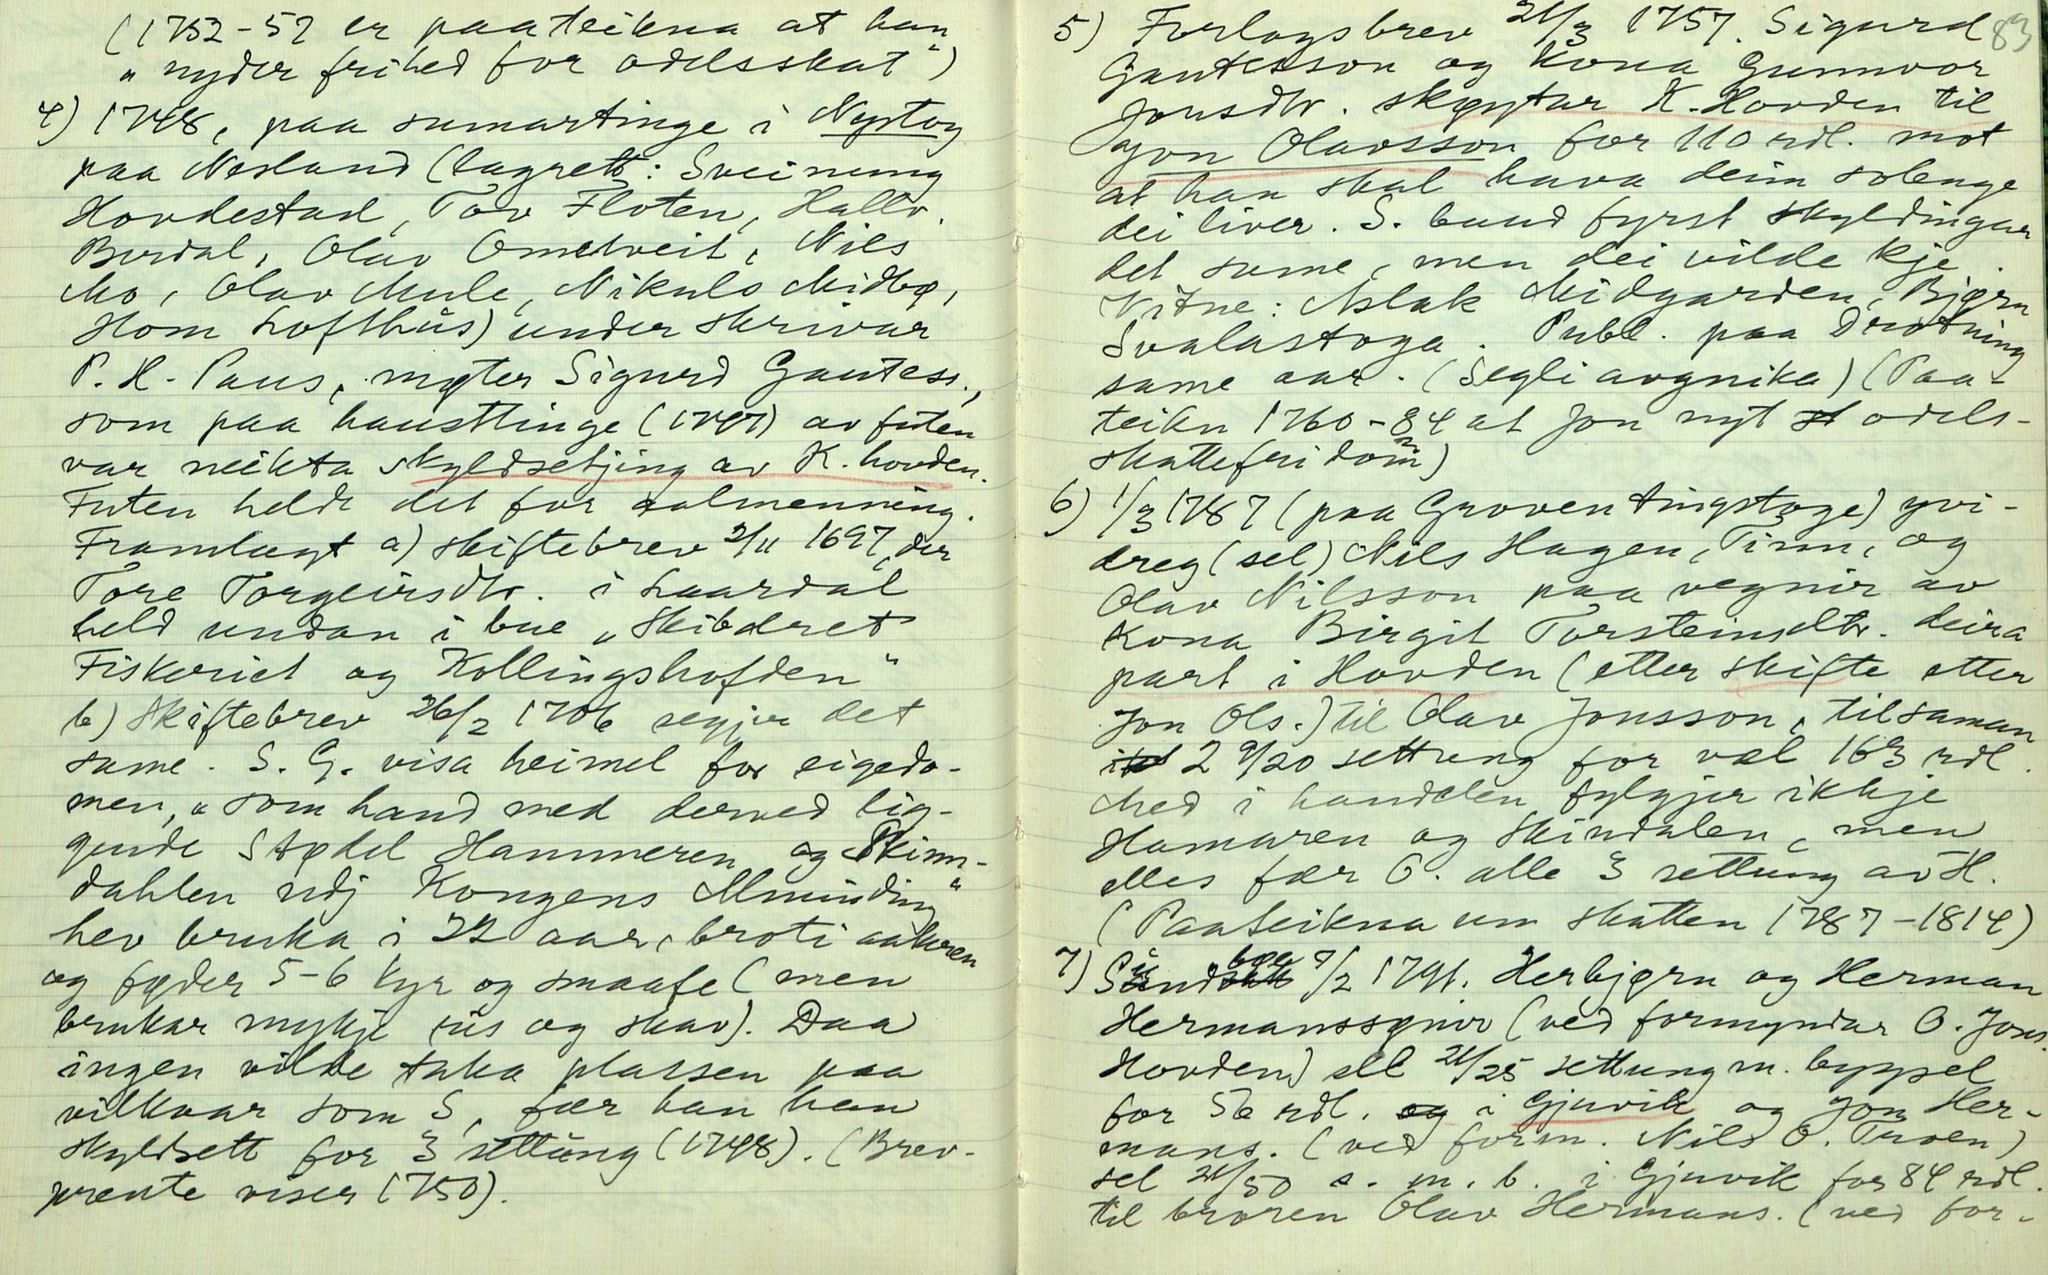 (1752-57 er paateikna at han
„nyder frihed for odelsskat")
4) 1748, paa sumartinge i Nystog
paa Nesland (lagrett: Sveinung
Hovdestad, Tov Floten, Hallv.
Burdal, Olav Omdtveit, Nils
Mo, Olav Mule, Nikuls Midbø,
Hom Lofthus) under skrivar
P. H. Paus, møter Sigurd Gautess.,
som paa hausttinge (1747) av futen
var neikta skyldsetjing av K. hovden.
Futen heldt det for aalmenning.
Framlagt a) skiftebrev 2/11 1697, der
Tore Torgeirsdtr. i Laardal
held undan i bue „Skibdret
Fiskeriet og Kollingshofden"
b) Skiftebrev 26/2 1706 segjer det
same. S. G. visa heimel for eigedo-
men, „som hand med derved lig-
gende Stødel Hammeren og Skinn-
dahlen udj Kongens Alminding"
hev bruka i 22 aar, broti aakeren
og føder 5-6 kyr og smaafe (men
brukar mykje ris og skav). Daa
ingen vilde taka plassen paa
vilkaar som S, fær han han
skyldsett for 3 settung (1748). (Brev-
prente viser 1750).
83
5) Forlogsbrev 21/3 1757. Sigurd
Gautesson og Kona Gunnvor
Jonsdtr. skøytar K. Hovden til
Jon Olavsson for 110 rdl. mot
at han skal hava deim solenge
dei liver. S. baud fyrst skyldingar
det same, men dei vilde kje.
Vitne: Aslak Midgarden, Bjørn
Svalastoga. Publ. paa Drotning
same aar. (Segli avgnika) (Paa-
teikn 1760-84 at Jon nyt odels-
skattefridom)
6) 1/3 1787 (paa Groven tingstoge) yvi-
dreg (sel) Nils Hagen, Tinn, og
Olav Nilsson paa vegnir av
Kona Birgit Torsteinsdtr. deira
part i Hovden (etter skifte etter
Jon Ols.) til Olav Jonsson, tilsaman
2 9/20 settung for vel 163 rdl.
Med i handelen fylgjer ikkje
Hamaren og Skindalen, men
elles fær O. alle 3 settung av H.
(Paateikna um skatten 1787-1814)
7) Sundbøe 7/2 1791. Herbjørn og Herman
Hermanssønir (ved formyndar O. Jons.
Hovden) sel 21/25 settung m. byggsel
for 56 rdl. i Gjuvik og Jon Her-
mans. (ved form. Nils O. Troen)
sel 21/50 s. m. b. i Gjuvik for 84 rdl.
til broren Olav Hermans. (ved for-